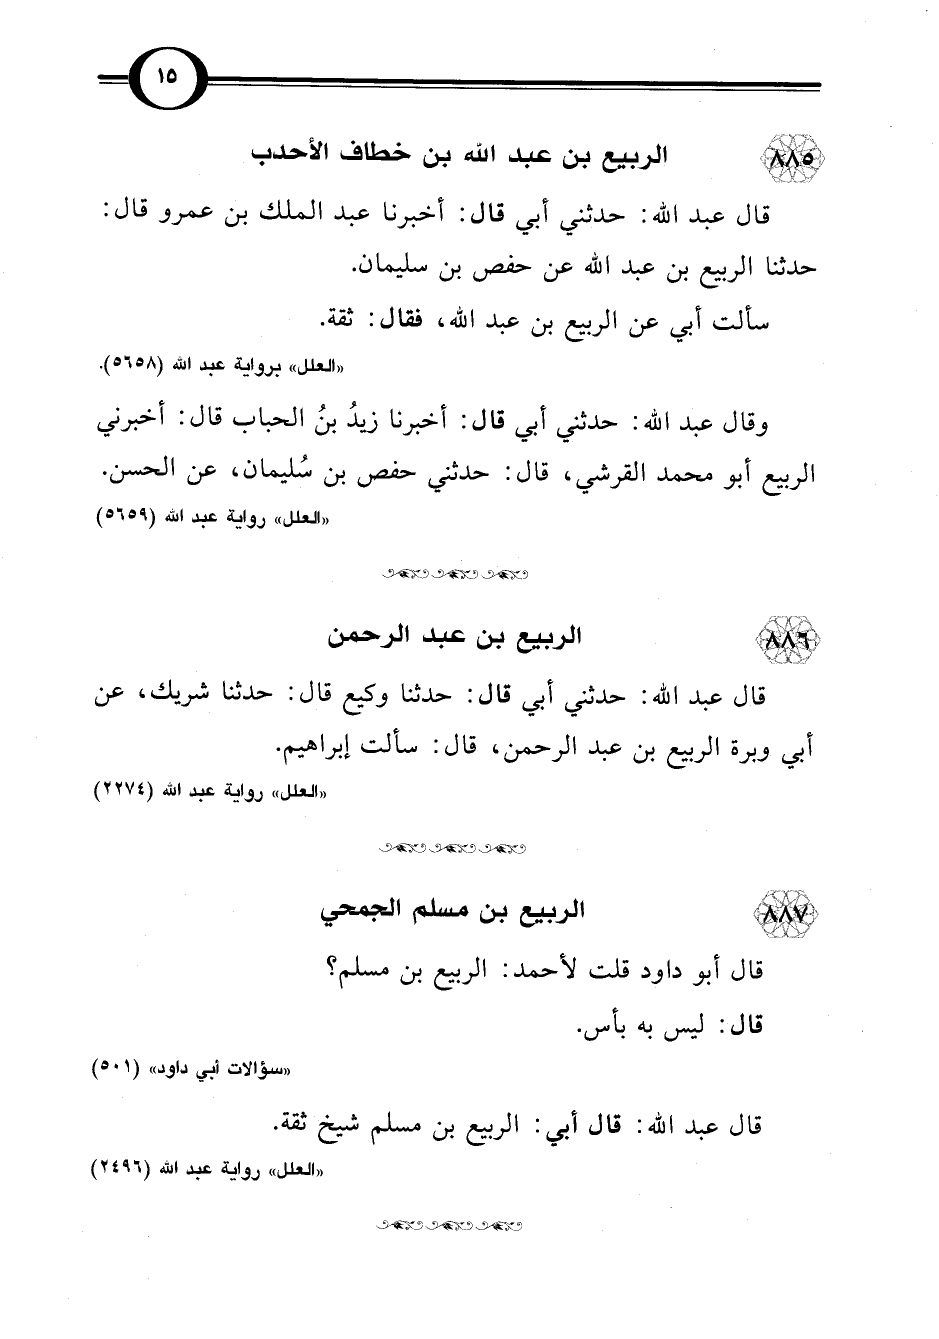 ١٥
٨٨٥ الربيع بن عبد الله بن خطاف الأحدب
قال عبد الله: حدثني أبي قال: أخبرنا عبد الملك بن عمرو قال:
حدثنا الربيع بن عبد الله عن حفص بن سليمان.
سألت أبي عن الربيع بن عبد الله، فقال: ثقة.
«العلل» برواية عبد الله (٥٦٥٨).
وقال عبد الله: حدثني أبي قال: أخبرنا زيدُ بنُ الحباب قال: أخبرني
الربيع أبو محمد القرشي، قال: حدثني حفص بن سُليمان، عن الحسن.
«العلل» رواية عبد الله (٥٦٥٩)
٨٨٦ الربيع بن عبد الرحمن
قال عبد الله: حدثني أبي قال: حدثنا وكيع قال: حدثنا شريك، عن
أبي وبرة الربيع بن عبد الرحمن، قال: سألت إبراهيم.
«العلل» رواية عبد الله (٢٢٧٤)
٨٨٧ الربيع بن مسلم الجمحي
قال أبو داود قلت لأحمد: الربيع بن مسلم؟
قال: ليس به بأس.
«سؤالات أبي داود» (٥٠١)
قال عبد الله: قال أبي: الربيع بن مسلم شيخ ثقة.
«العلل» رواية عبد الله (٢٤٩٦)